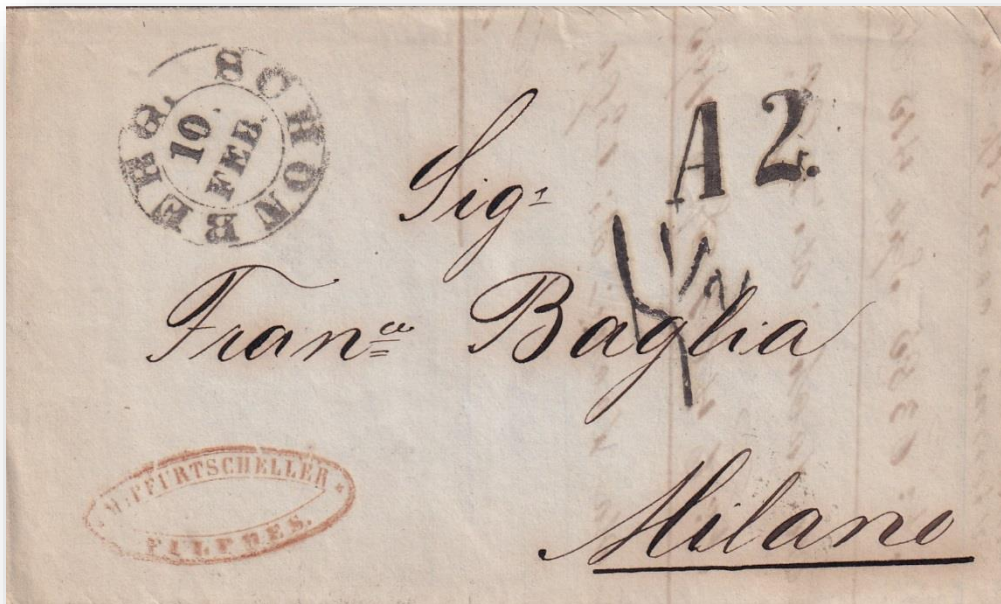 SCHONBERG.
10
FEB.
A 2.
Sigr
4 1/2
Fran Baglia
M: PFURTSCHELLER
FULPMES.
Milano